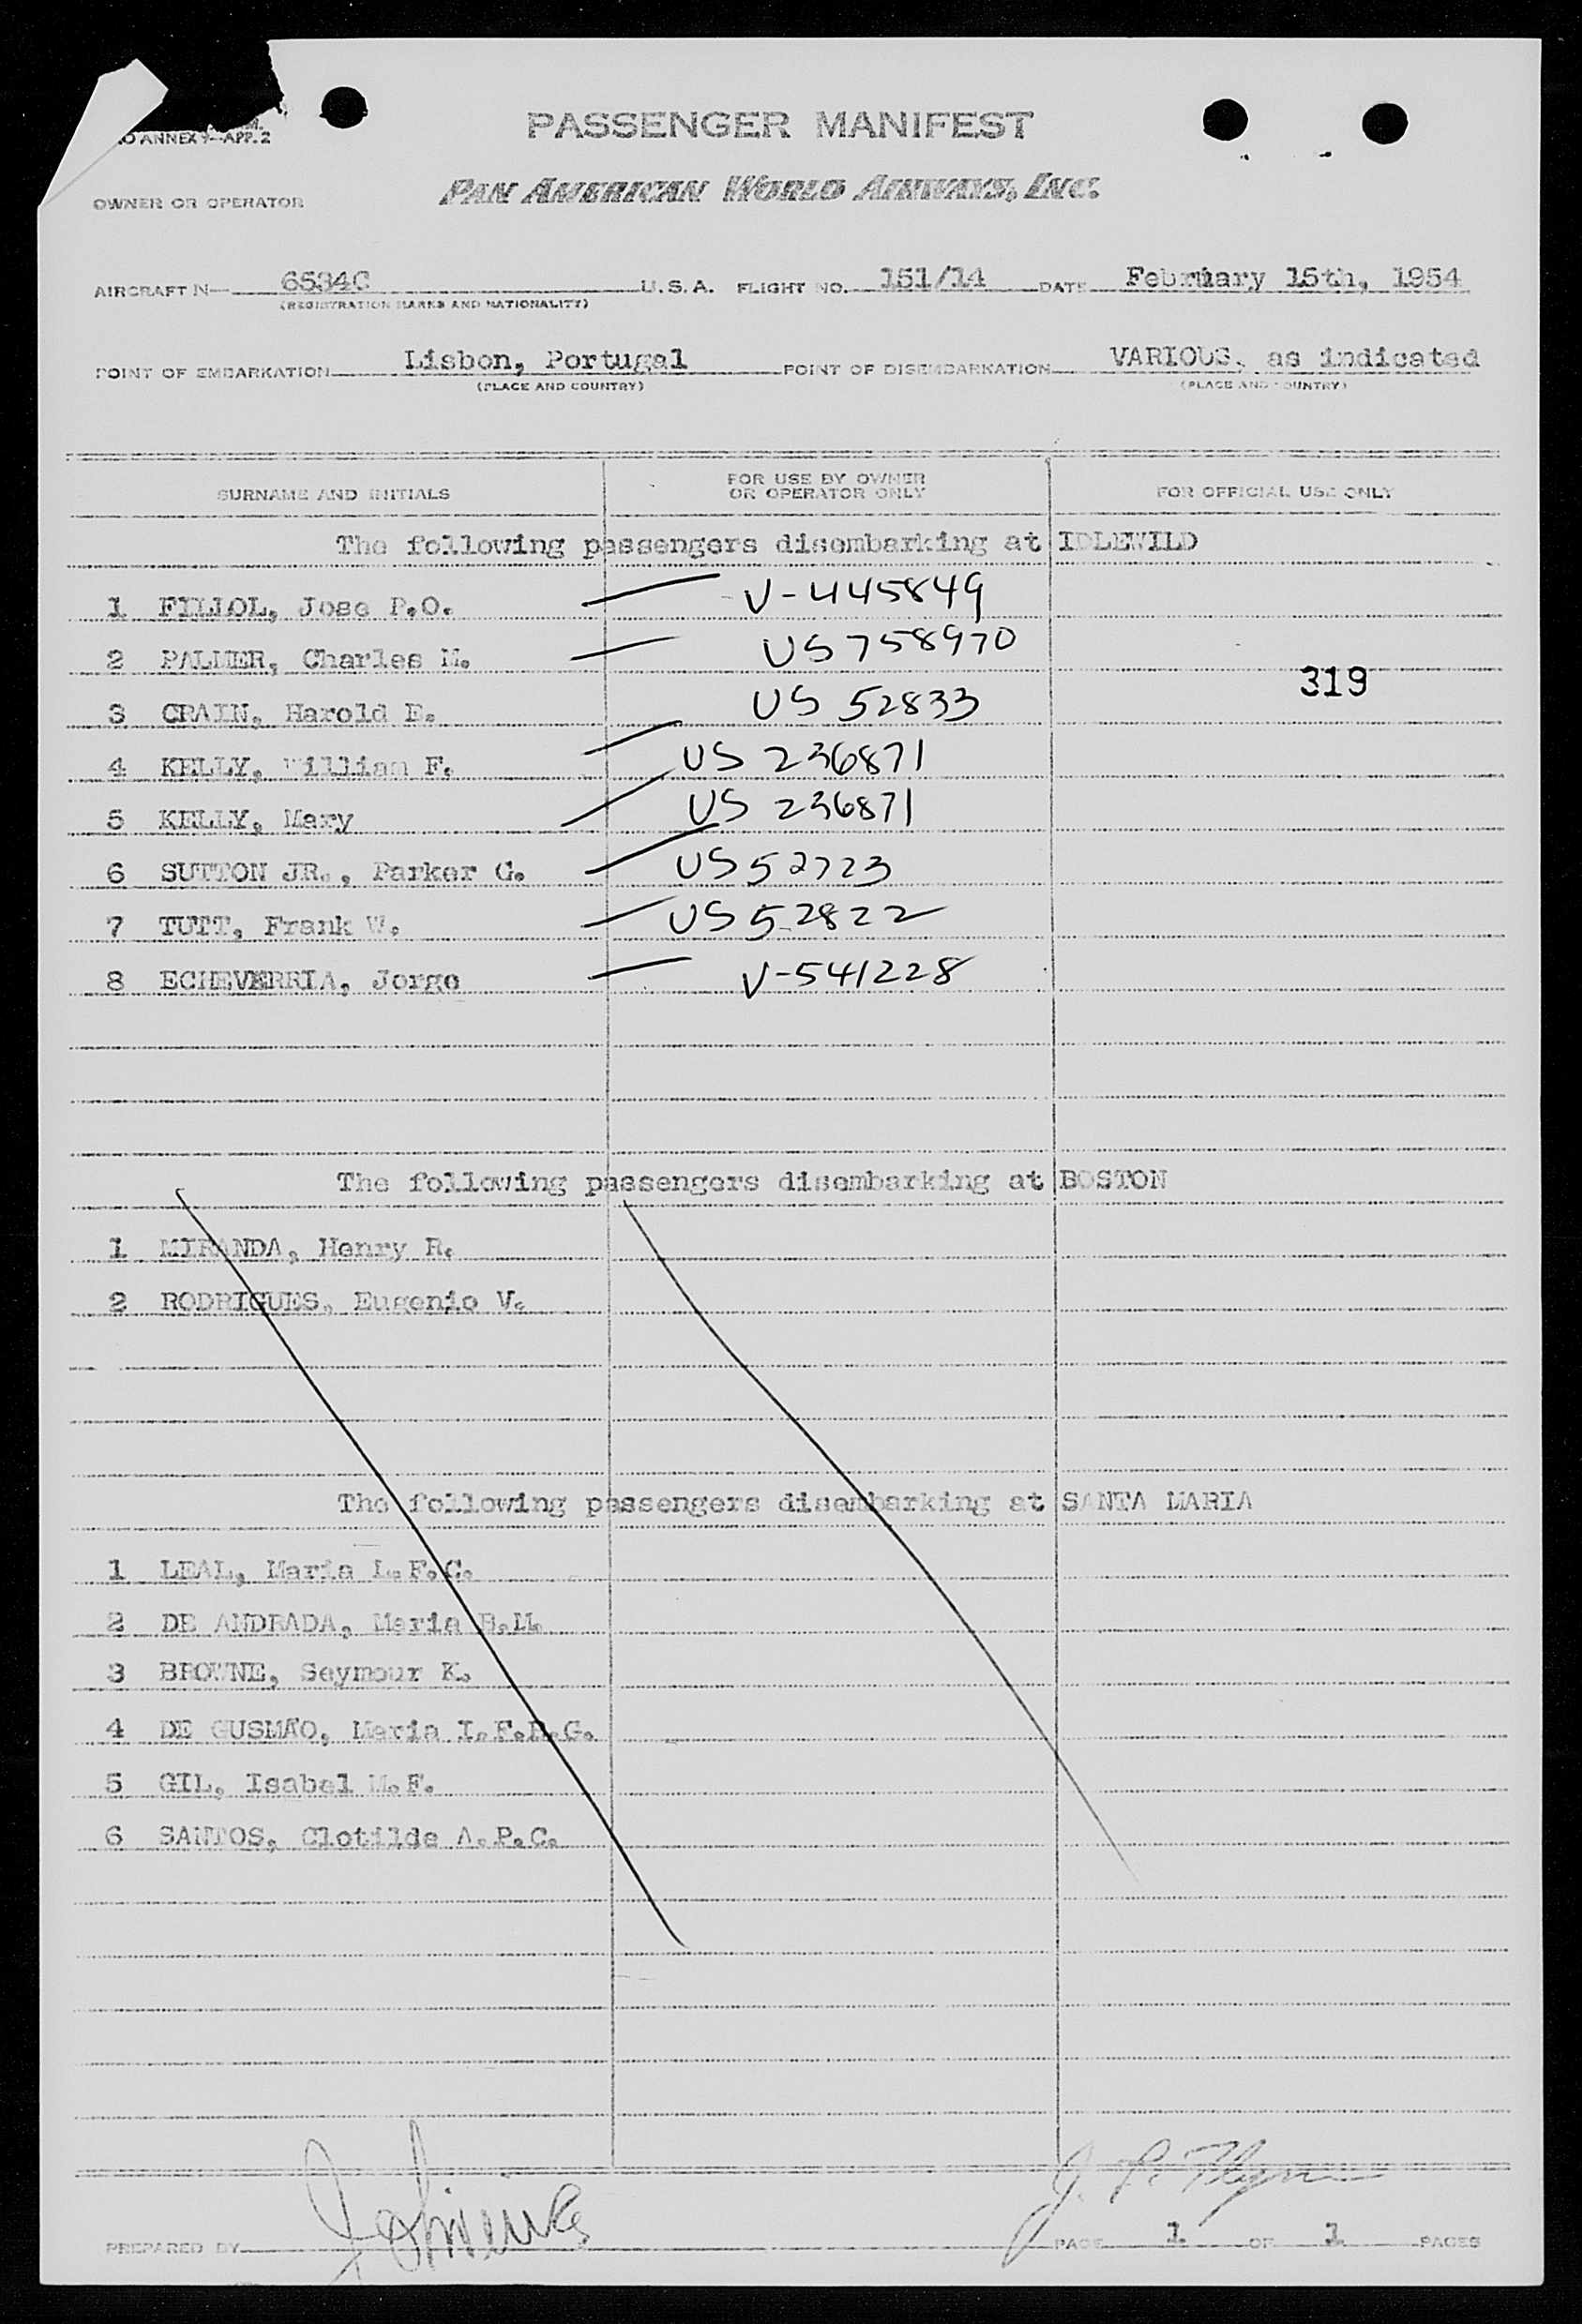 O ANNEX 9—APP. 2
PASSENGER MANIFEST
OWNER OR OPERATOR PAN AMERICAN WORLD AIRWAYS, INC.
AIRCRAFT N— 6534C U.S.A. FLIGHT NO. 151/14 DATE February 15th, 1954
(REGISTRATION MARKS AND NATIONALITY)
POINT OF EMBARKATION Lisbon, Portugal POINT OF DISEMBARKATION VARIOUS, as indicated
(PLACE AND COUNTRY) (PLACE AND COUNTRY)
SURNAME AND INITIALS FOR USE BY OWNER OR OPERATOR ONLY FOR OFFICIAL USE ONLY
The following passengers disembarking at IDLEWILD
1 FILLOL, Jose P.O. V-445849
2 PALMER, Charles M. US 758970
319
3 CRAIN, Harold E. US 52833
4 KELLY, William F. US 236871
5 KELLY, Mary US 236871
6 SUTTON JR., Parker G. US 52723
7 TUTT, Frank W. US 52822
8 ECHEVERRIA, Jorge V-541228
The following passengers disembarking at BOSTON
1 MIRANDA, Henry R.
2 RODRIGUES, Eugenio V.
The following passengers disembarking at SANTA MARIA
1 LEAL, Maria L.F.C.
2 DE ANDRADA, Maria B.M.
3 BROWNE, Seymour K.
4 DE GUSMÃO, Maria I.F.R.G.
5 GIL, Isabel M.F.
6 SANTOS, Clotilde A.P.C.
J. P. Flynn
PREPARED BY PAGE 1 OF 1 PAGES